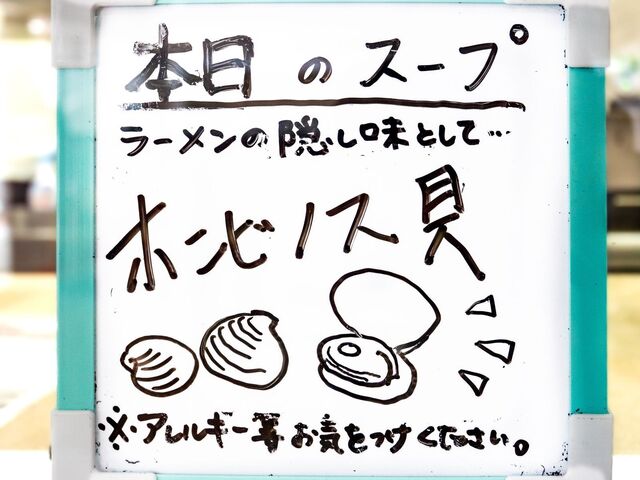 本日のスープ
ラーメンの隠し味として…
ホンビノス貝
※アレルギー等お気をつけください。